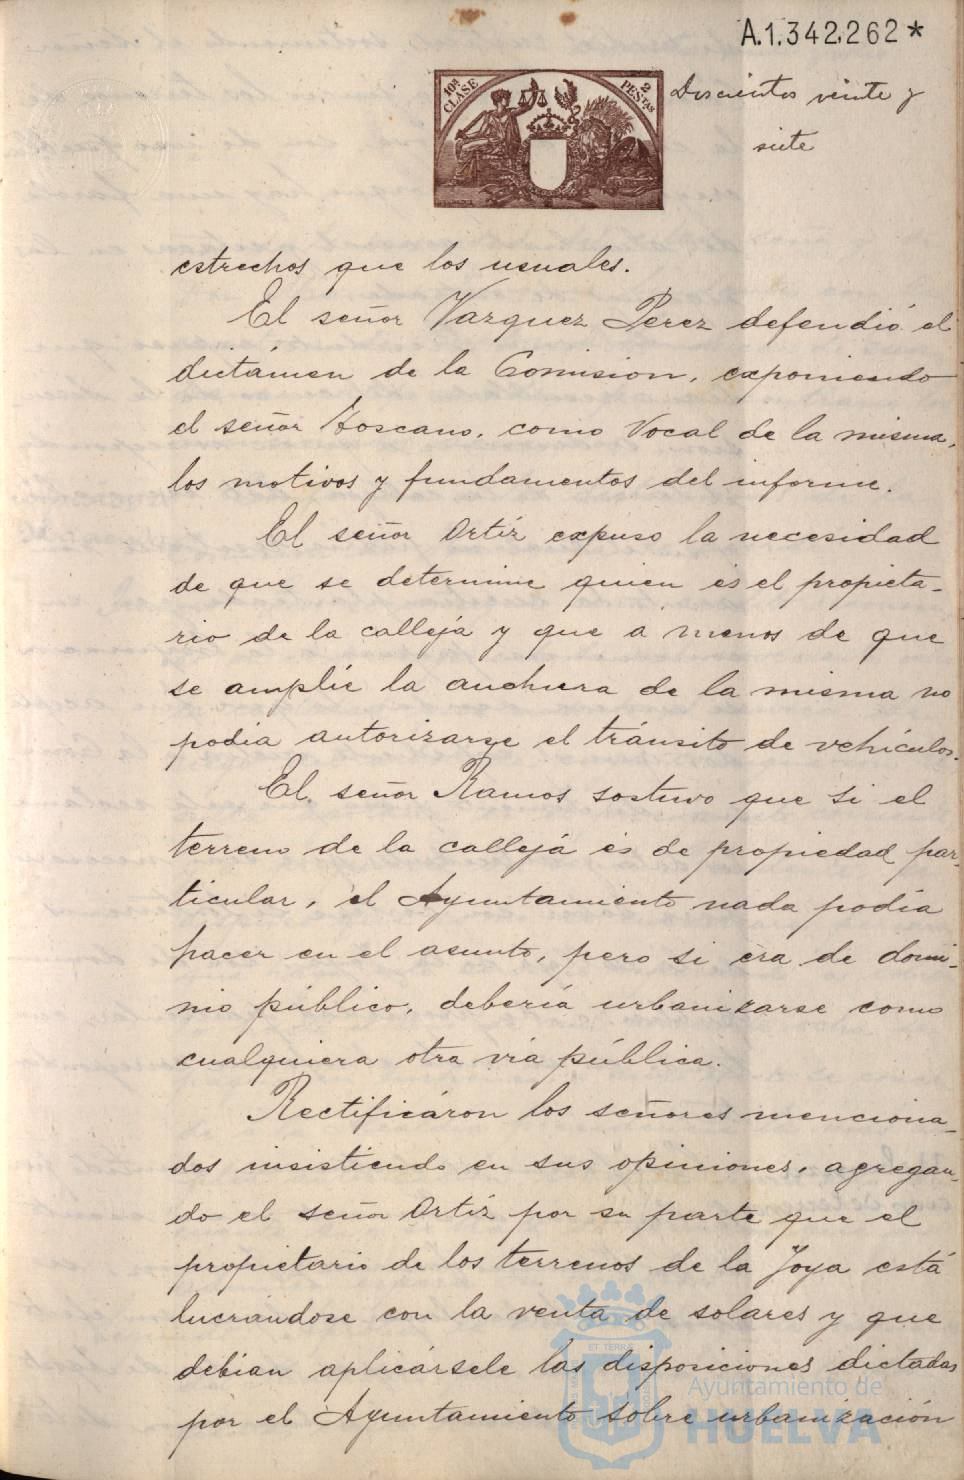 A.1.342.262*
10ª CLASE
2 PESTAS
Doscientos veinte y
siete
estrechos que los usuales.
El señor Vazquez Perez defendió el
dictámen de la Comision, exponiendo
el señor Toscano, como Vocal de la misma,
los motivos y fundamentos del informe.
El señor Ortíz expuso la necesidad
de que se determine quien es el propieta-
rio de la calleja y que a menos de que
se amplíe la anchura de la misma no
podia autorizarse el tránsito de vehículos.
El señor Ramos sostuvo que si el
terreno de la callejá es de propiedad par-
ticular, el Ayuntamiento nada podía
hacer en el asunto, pero si era de domi-
nio público, debería urbanizarse como
cualquiera otra vía pública.
Rectificáron los señores menciona-
dos insistiendo en sus opiniones, agregan-
do el señor Ortíz por su parte que el
propietario de los terrenos de la Joya está
lucrándose con la venta de solares y que
debian aplicársele las disposiciones dictadas
por el Ayuntamiento sobre urbanización
ET TERRA
Ayuntamiento de
HUELVA